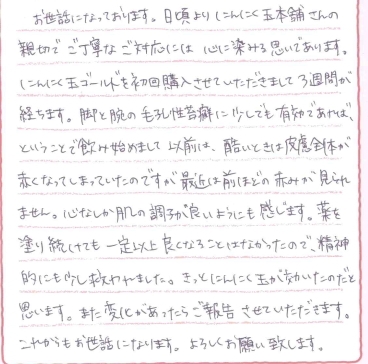 お世話になっております。日頃よりにんにく玉本舗さんの
親切でご丁寧なご対応には心に染みる思いであります。
にんにく玉ゴールドを初回購入させていただきまして3週間が
経ちます。脚と腕の毛孔性苔癬に少しでも有効であれば、
ということで飲み始めまして以前は、酷いときは皮膚全体が
赤くなってしまっていたのですが最近は前ほどの赤みが見られ
ません。心なしか肌の調子が良いようにも感じます。薬を
塗り続けても一定以上良くなることはなかったので、精神
的にも少し救われました。きっとにんにく玉が効いたのだと
思います。また変化があったらご報告させていただきます。
これからもお世話になります。よろしくお願い致します。